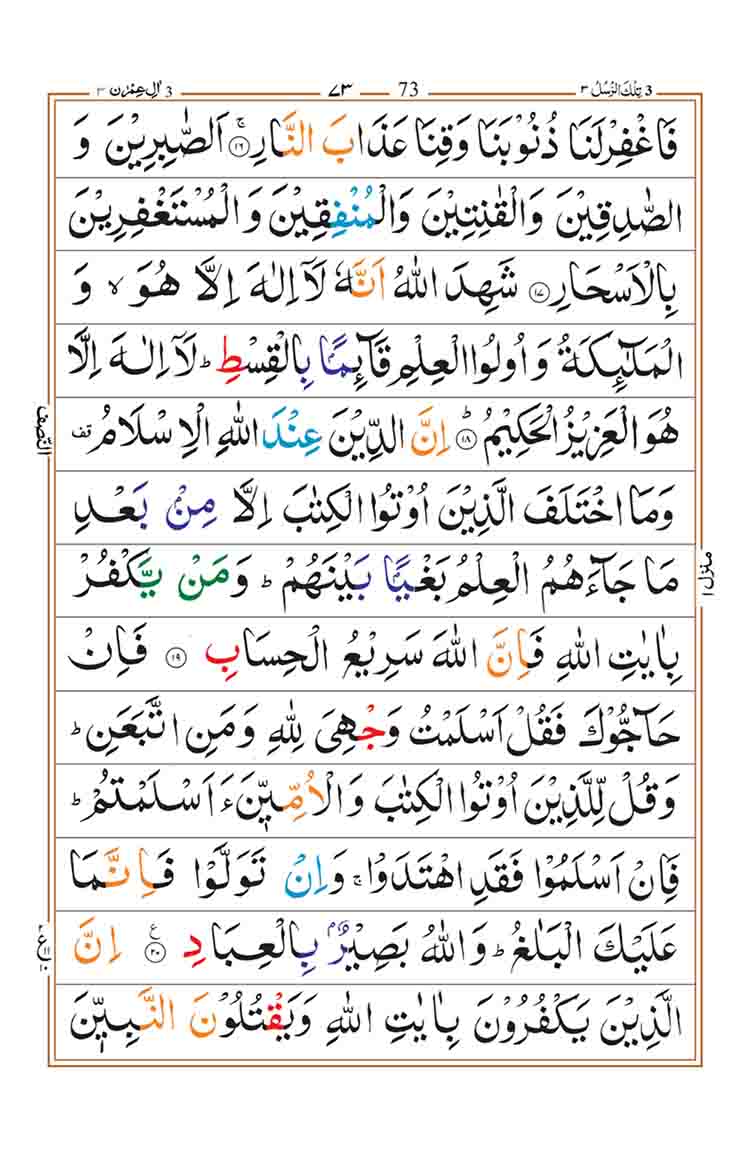 3 تِلْكَ الرُّسُلُ ٣
73 ٧٣
3 اٰلِ عِمْرٰن ٣
فَاغْفِرْ لَنَا ذُنُوْبَنَا وَقِنَا عَذَابَ النَّارِ ۚ‏ ﴿۱۶﴾ اَلصّٰبِرِيْنَ وَ
الصّٰدِقِيْنَ وَالْقٰنِتِيْنَ وَالْمُنْفِقِيْنَ وَ الْمُسْتَغْفِرِيْنَ
بِالْاَسْحَارِ ﴿۱۷﴾ شَهِدَ اللّٰهُ اَنَّهٗ لَاۤ اِلٰهَ اِلَّا هُوَ ۙ وَ
الْمَلٰٓئِكَةُ وَ اُولُوا الْعِلْمِ قَآئِمًۢا بِالْقِسْطِ ؕ لَاۤ اِلٰهَ اِلَّا
هُوَ الْعَزِيْزُ الْحَكِيْمُ ؕ ﴿۱۸﴾ اِنَّ الدِّيْنَ عِنْدَ اللّٰهِ الْاِسْلَامُ قف
وَمَا اخْتَلَفَ الَّذِيْنَ اُوْتُوا الْكِتٰبَ اِلَّا مِنْۢ بَعْدِ
مَا جَآءَهُمُ الْعِلْمُ بَغْيًۢا بَيْنَهُمْ ؕ وَمَنْ يَّكْفُرْ
بِاٰيٰتِ اللّٰهِ فَاِنَّ اللّٰهَ سَرِيْعُ الْحِسَابِ ﴿۱۹﴾ فَاِنْ
حَآجُّوْكَ فَقُلْ اَسْلَمْتُ وَجْهِيَ لِلّٰهِ وَمَنِ اتَّبَعَنِ ؕ
وَقُلْ لِّلَّذِيْنَ اُوْتُوا الْكِتٰبَ وَالْاُمِّيّٖنَ ءَاَسْلَمْتُمْ ؕ
فَاِنْ اَسْلَمُوْا فَقَدِ اهْتَدَوْا ۚ وَاِنْ تَوَلَّوْا فَاِنَّمَا
عَلَيْكَ الْبَلٰغُ ؕ وَاللّٰهُ بَصِيْرٌۢ بِالْعِبَادِ ﴿۲۰﴾ ع اِنَّ
الَّذِيْنَ يَكْفُرُوْنَ بِاٰيٰتِ اللّٰهِ وَيَقْتُلُوْنَ النَّبِيّٖنَ
النّصف
منزل ١